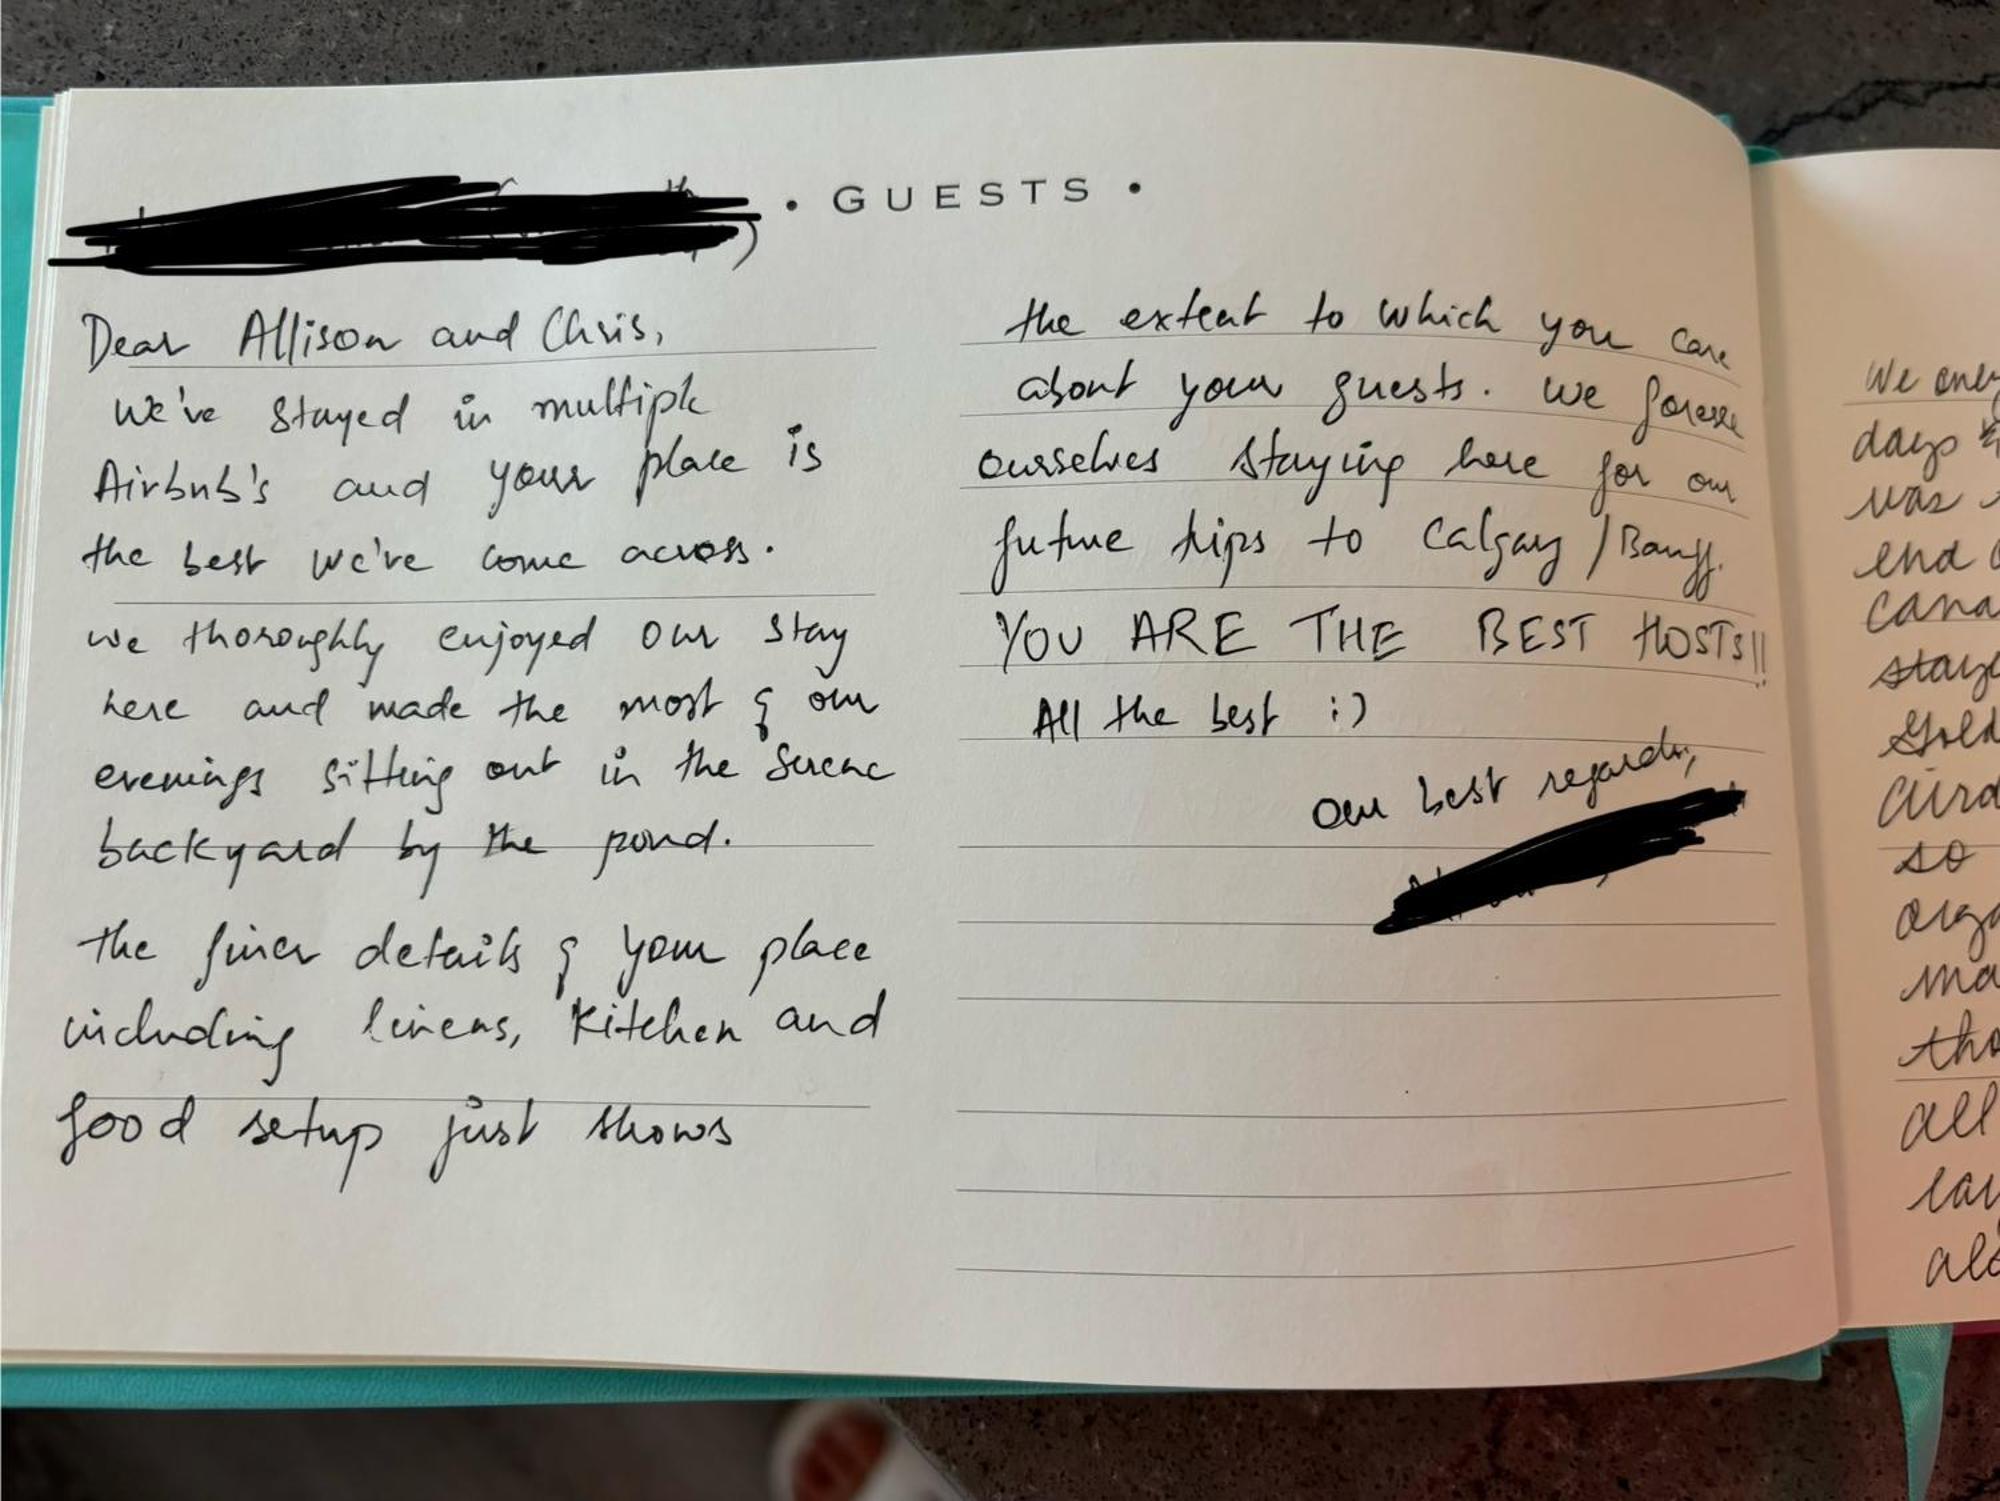 • GUESTS •
Dear Allison and Chris,
We've stayed in multiple
Airbnb's and your place is
the best we've come across.
we thoroughly enjoyed our stay
here and made the most of our
evenings sitting out in the serene
backyard by the pond.
The finer details of your place
including linens, kitchen and
food setup just shows
the extent to which you care
about your guests. We foresee
ourselves staying here for our
future trips to Calgary / Banff.
YOU ARE THE BEST HOSTS!!
All the best :)
Our best regards,
We
days
was
end
so
all